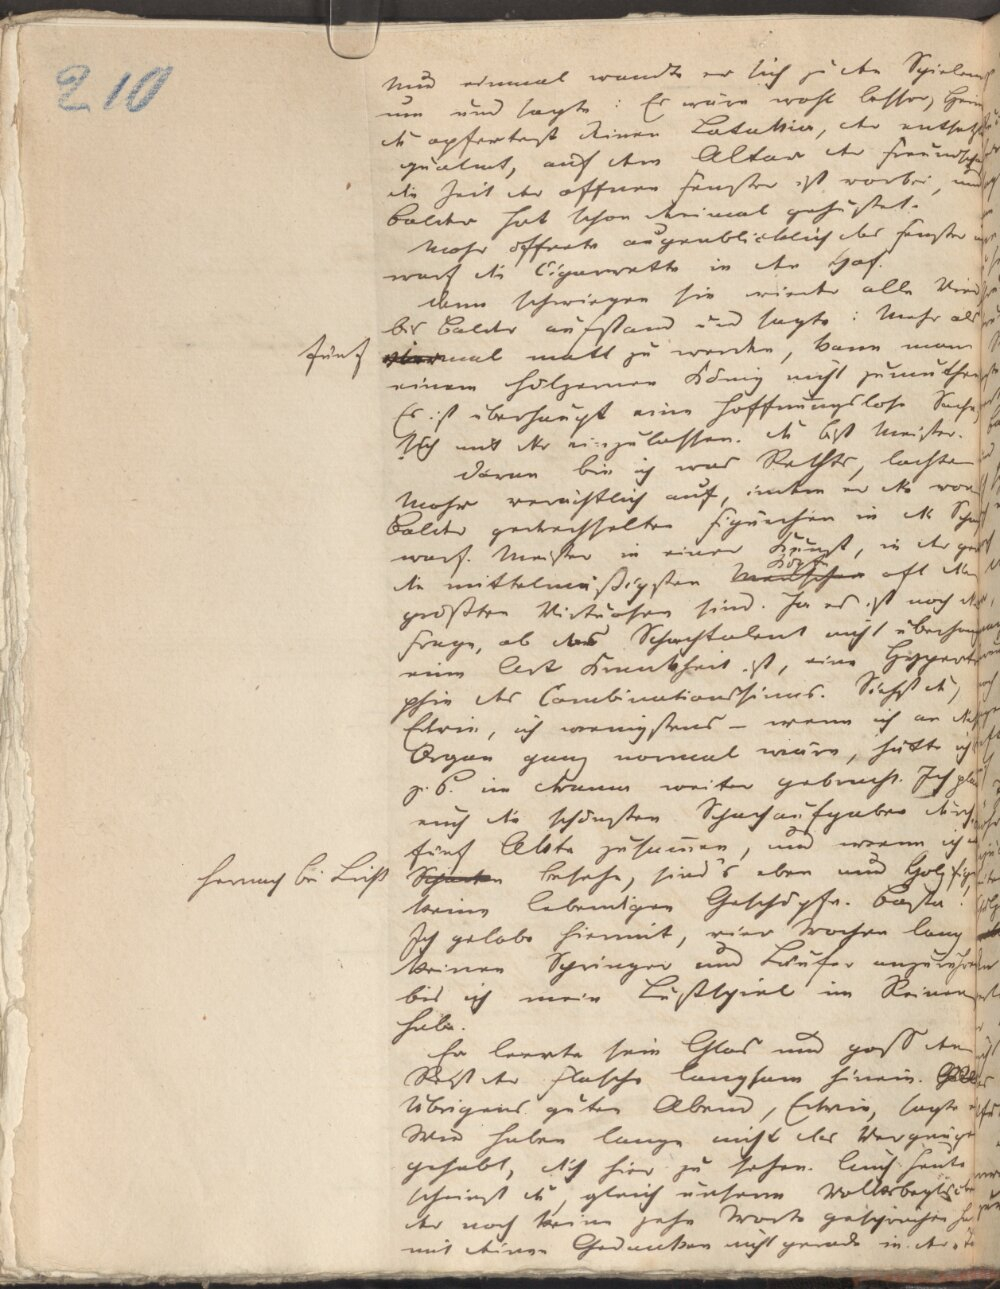 210
Nur einmal wandte er sich zu den Spielenden
um und sagte: Es wäre wohl besser, Hein
du opfertest deinen Latakia, der entsetzlich
qualmt, auf dem Altar der Freundschaft
die Zeit der offnen Fenster ist vorbei, und
Balder hat schon dreimal gehustet.
Mohr öffnete augenblicklich das Fenster und
warf die Cigarrette in den Hof.
Dann schwiegen sie wieder alle Vier
bis Balder aufstand und sagte: Mehr als
fünf viermal matt zu werden, kann man
einem hölzernen König nicht zumuthen
Es ist überhaupt eine hoffnungslose Sache,
sich mit dir einzulassen. Du bist Meister.
Daran bin ich was Rechts, lachte
Mohr verächtlich auf, indem er die von
Balder gedrechselten Figürchen in die Schach
warf. Meister in einer Kunst, in der ge
die mittelmäßigsten Menschen Köpfe oft die
größten Virtuosen sind. Ja es ist noch die
Frage, ob das Schachtalent nicht überhaupt
eine Art Krankheit ist, eine Hypertro
phie des Combinationssinns. Siehst du,
Edwin, ich wenigstens – wenn ich an dies
Organ ganz normal wäre, hätte ich
z. B. im Drama weiter gebracht. Ich
euch die schönsten Schachaufgaben durch
fünf Akte zusammen, und wenn ich
hernach bei Licht besehe, sind's eben nur Holzfig
keine lebendigen Geschöpfe. Basta!
Ich gelobe hiermit, vier Wochen lang
keinen Springer und Läufer anzurühren
bis ich mein Lustspiel im Reinen
habe.
Er leerte sein Glas und goß den
Rest der Flasche langsam hinein.
Übrigens guten Abend, Edwin, sagte er
Wir haben lange nicht das Vergnügen
gehabt, dich hier zu sehen. Auch heute
scheinst du, gleich unserm Volksbeglücker
der noch keine zehn Worte gesprochen hat
mit deinen Gedanken nicht gerade in der